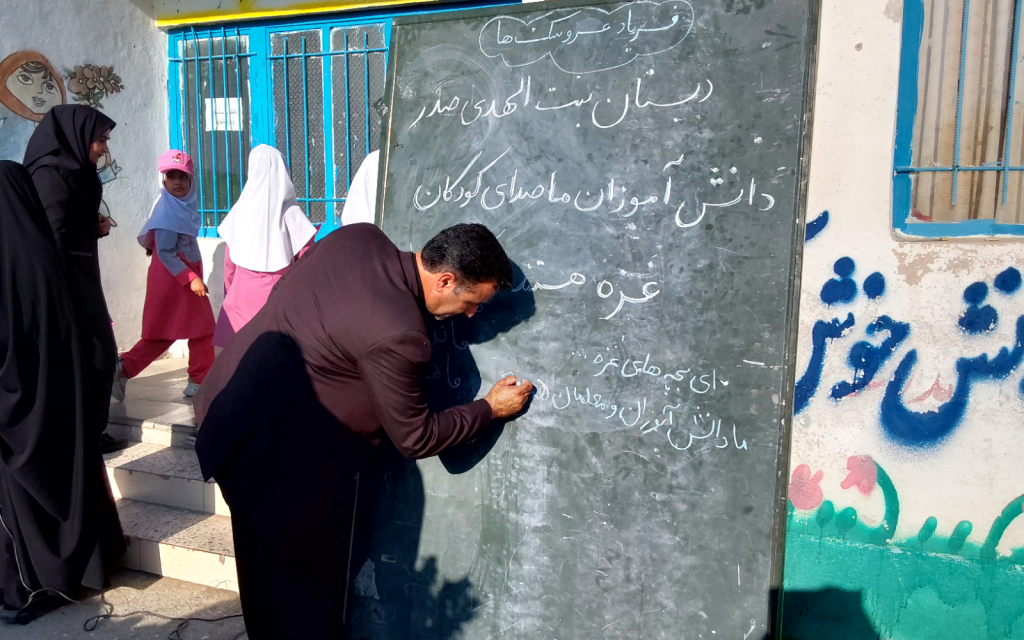 فریاد عروسک‌ها
دبستان بنت الهدی صدر
دانش آموزان ما صدای کودکان
غزه هستند
ای بچه های غزه ...
ما دانش آموزان و معلمان
خوش